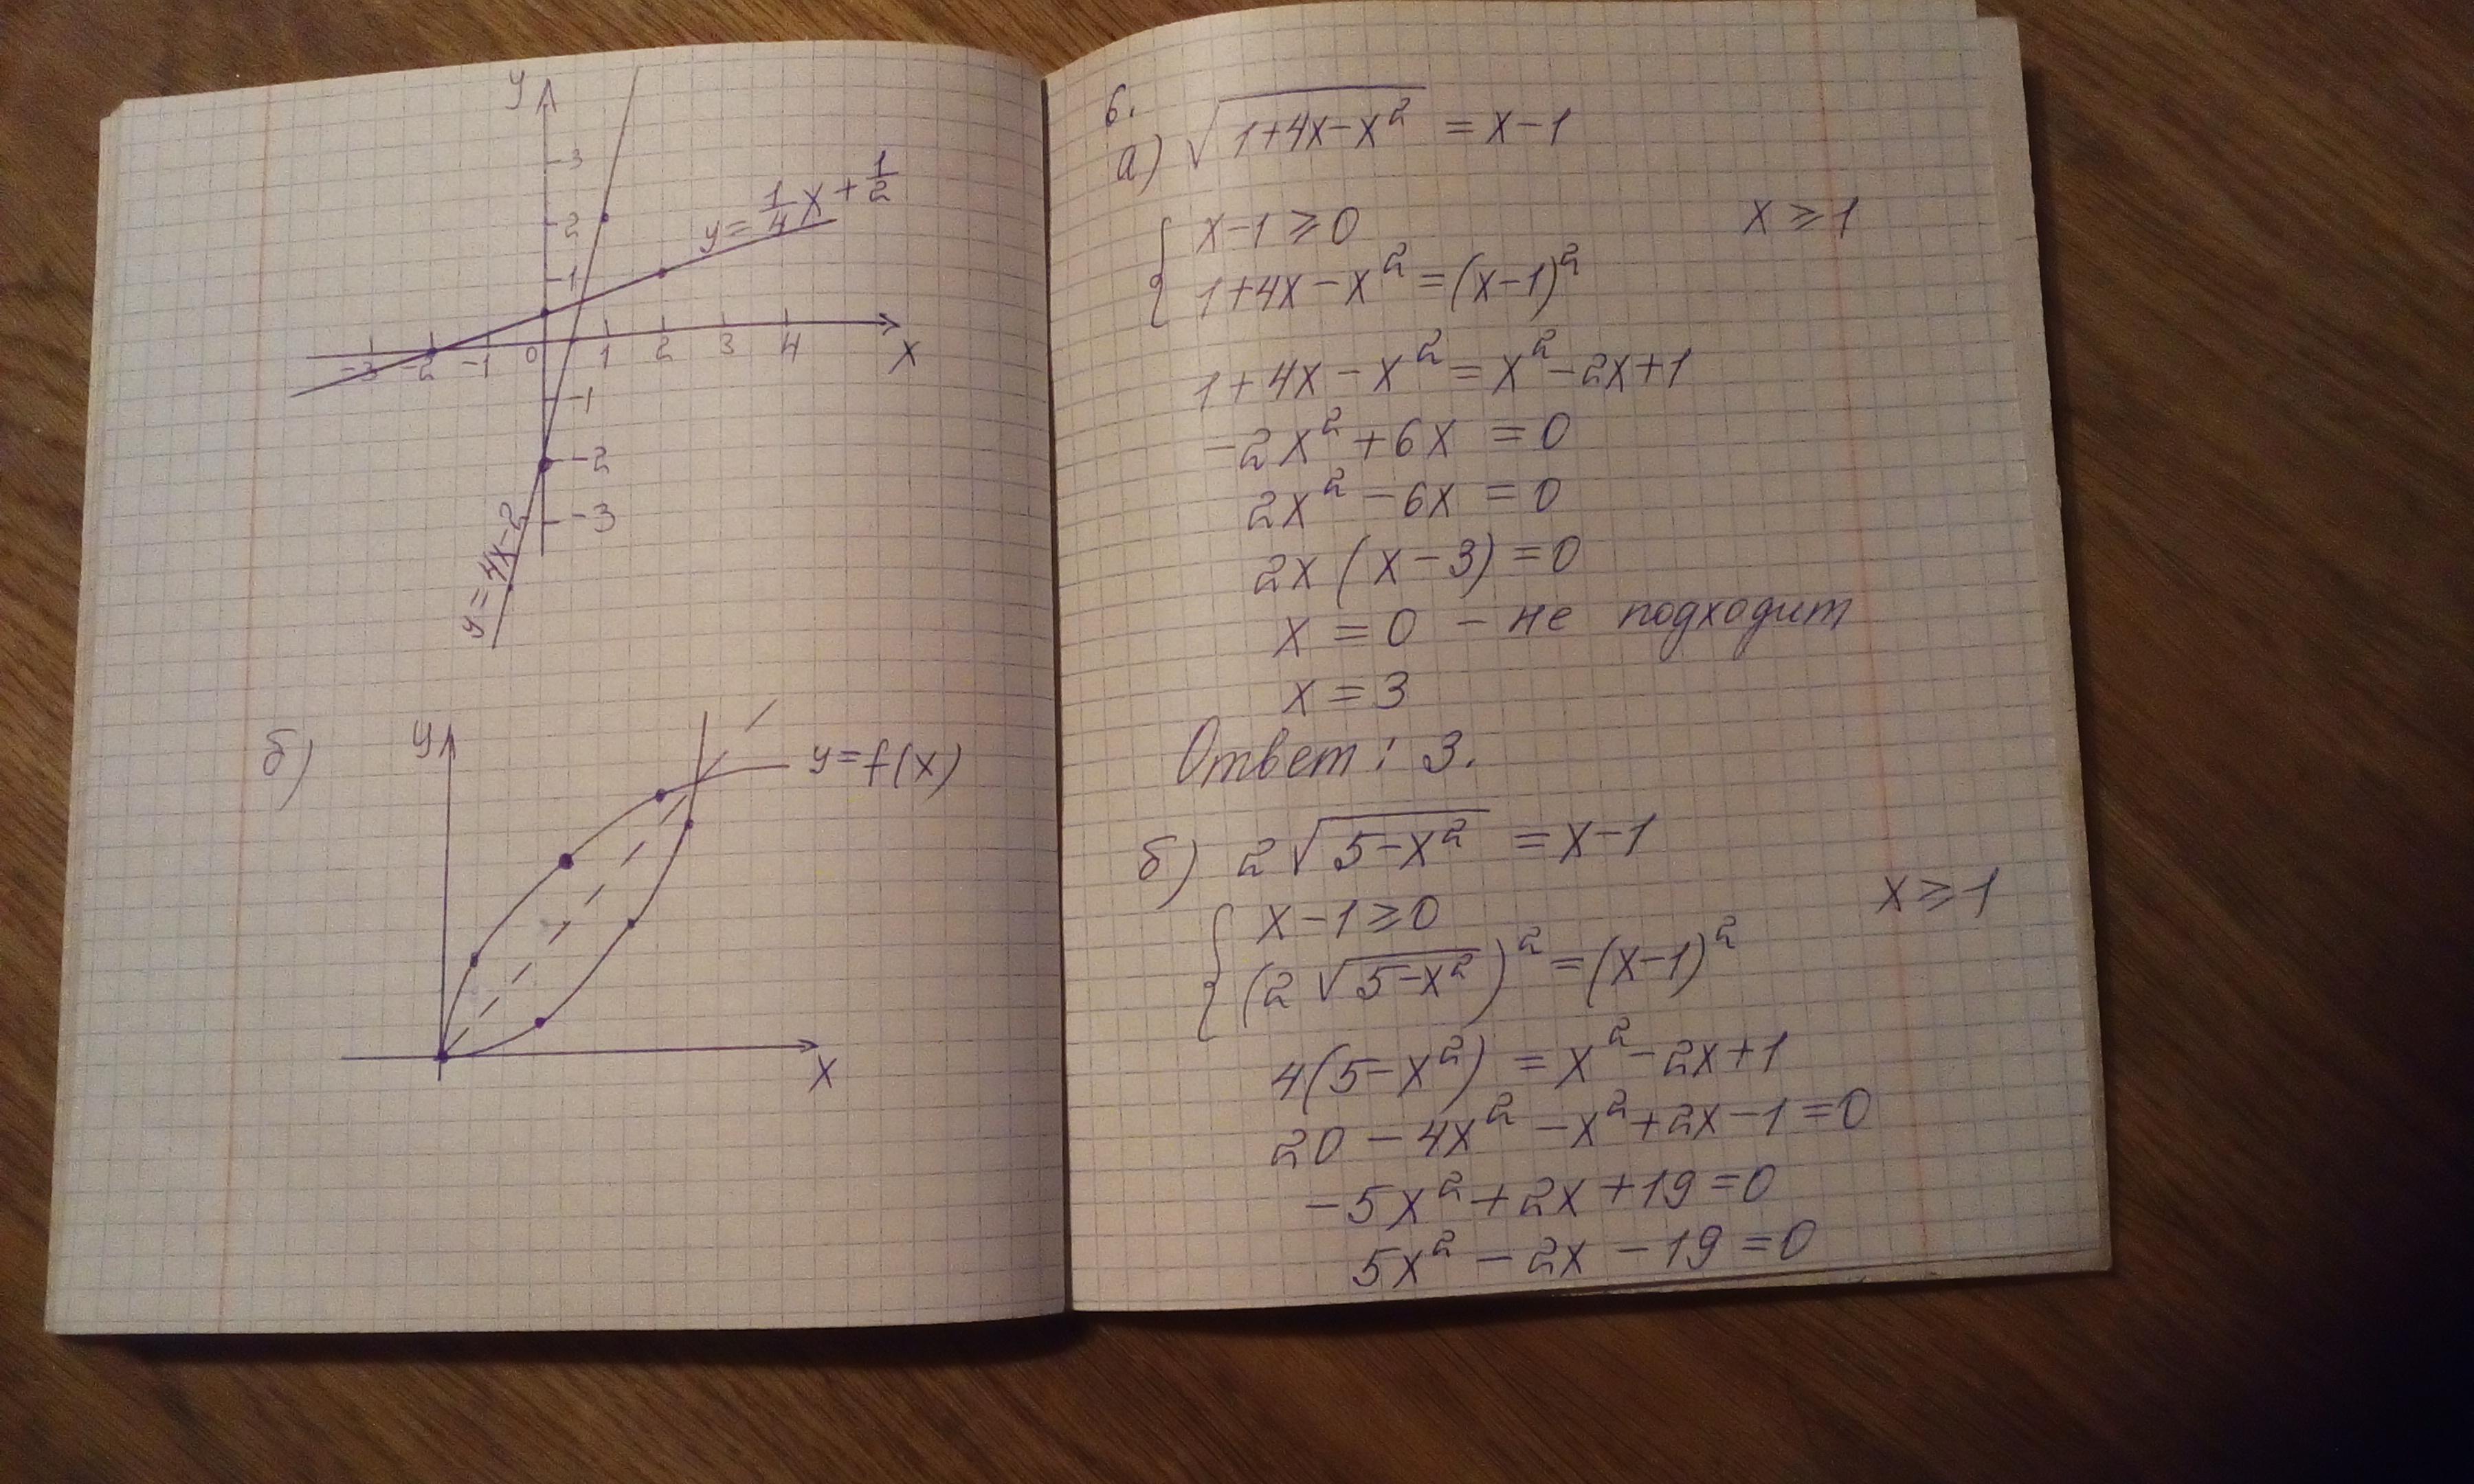 y
3
2
1
y = 1/4 x + 1/2
-3 -2 -1 0 1 2 3 4 x
-1
-2
-3
y = 4x-2
б)
y
y = f(x)
x
6.
а) √(1+4x-x²) = x-1
{ x-1 ≥ 0 x ≥ 1
1+4x-x² = (x-1)²
1+4x-x² = x²-2x+1
-2x²+6x = 0
2x²-6x = 0
2x(x-3) = 0
x = 0 - не подходит
x = 3
Ответ: 3.
б) 2√(5-x²) = x-1
{ x-1 ≥ 0 x ≥ 1
(2√(5-x²))² = (x-1)²
4(5-x²) = x²-2x+1
20-4x²-x²+2x-1=0
-5x²+2x+19=0
5x²-2x-19=0